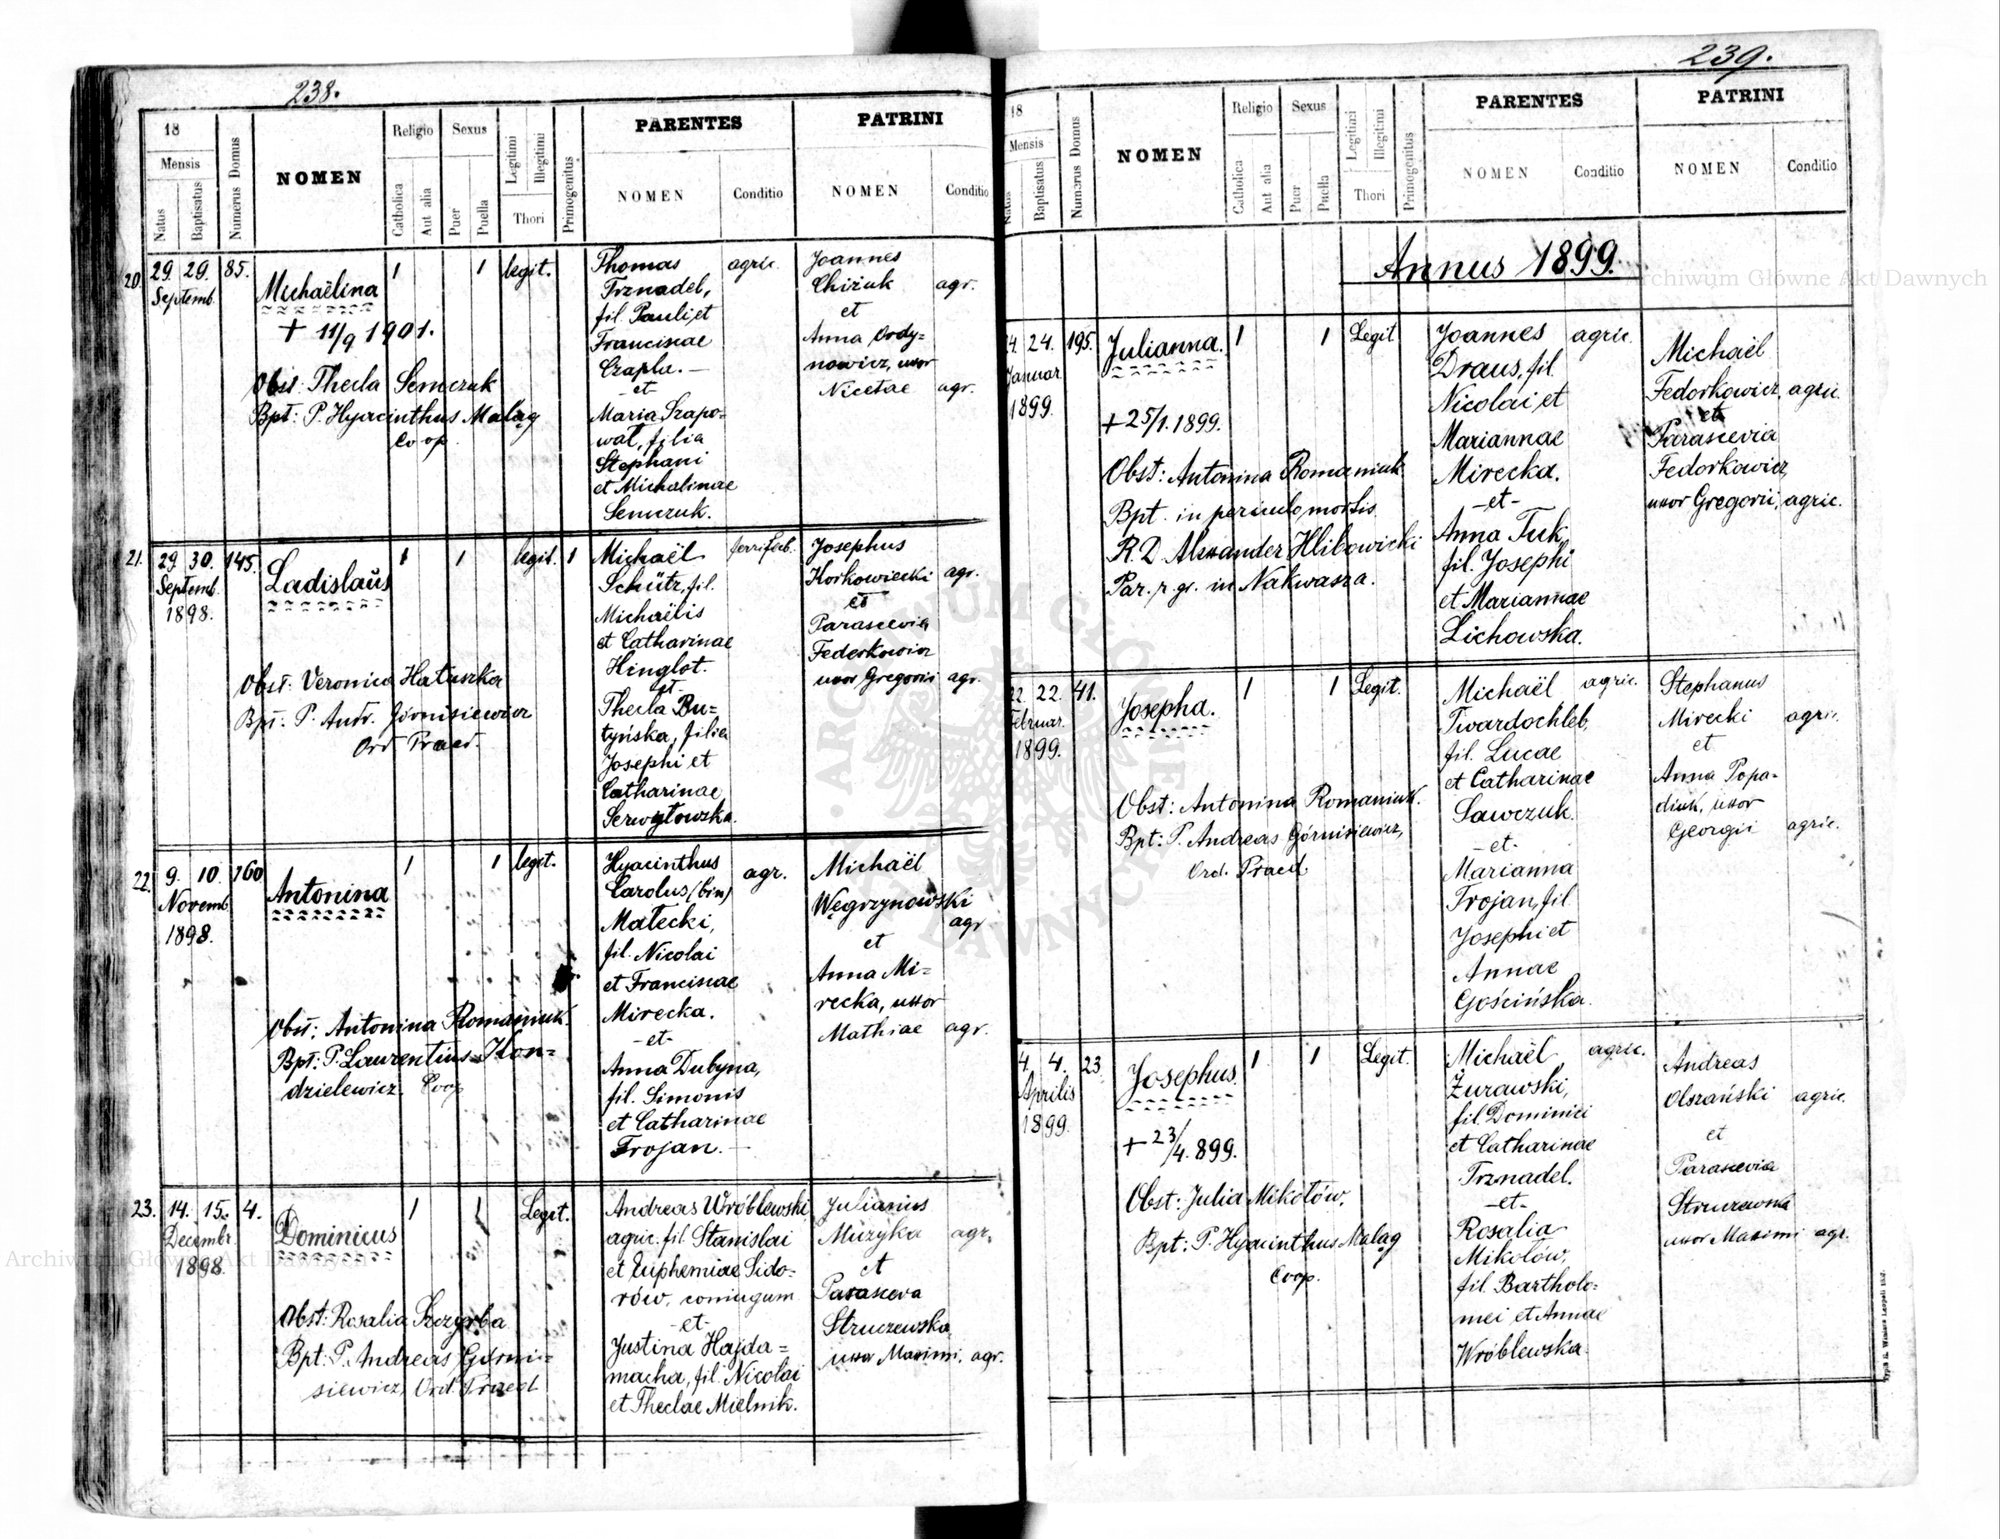 238.
18
Mensis
Natus
Baptisatus
Numerus Domus
NOMEN
Religio
Catholica
Aut alia
Sexus
Puer
Puella
Legitimi
Illegitimi
Thori
Primogenitus
PARENTES
NOMEN
Conditio
PATRINI
NOMEN
Conditio
20.
29. 29. 85.
Septemb.
Michaëlina
1 1 legit.
+ 11/9 1901.
Obst: Thecla Semczuk
Bpt: P. Hyacinthus Maląg
Coop.
Thomas agric.
Trznadel,
fil. Pauli et
Franciscae
Czapla. —
et
Maria Szapo-
wał, filia
Stephani
et Michalinae
Semczuk.
Joannes
Chiżuk agr.
et
Anna Ordy-
nowicz, uxor
Nicetae agr.
21.
29. 30. 145.
Septemb.
1898.
Ladislaus
1 1 legit. 1
Obst: Veronica Hałuszka
Bpt: P. Andr. Górnisiewicz
Ord. Praed.
Michaël
Schütz, fil.
Michaëlis
et Catharinae
Hinglot.
et
Thecla Bu-
tyńska, filia
Josephi et
Catharinae
Serwyłowska.
Josephus
Korkowiecki agr.
et
Parascevia
Federkowicz
uxor Gregorii agr.
22.
9. 10. 160
Novemb.
1898.
Antonina
1 1 legit.
Obst: Antonina Romaniuk.
Bpt: P. Laurentius Kon-
dzielewicz. Coop
Hyacinthus agr.
Carolus (bin)
Małecki,
fil. Nicolai
et Franciscae
Mirecka.
-et-
Anna Dubyna,
fil. Simonis
et Catharinae
Trojan. —
Michaël
Węgrzynowski
agr
et
Anna Mi-
recka, uxor
Mathiae agr.
23.
14. 15. 4.
Decembr.
1898.
Dominicus
1 1 Legit.
Obst: Rosalia Szczyrba
Bpt: P. Andreas Górni-
siewicz, Ord. Praed
Andreas Wróblewski
agric. fil. Stanislai
et Euphemiae Sido-
rów, coniugum
-et-
Justina Hajda-
macha, fil. Nicolai
et Theclae Mielnik.
Julianus
Muzyka agr.
et
Parasceva
Struczewska
uxor Maximi. agr.
239.
18
Mensis
Natus
Baptisatus
Numerus Domus
NOMEN
Religio
Catholica
Aut alia
Sexus
Puer
Puella
Legitimi
Illegitimi
Thori
Primogenitus
PARENTES
NOMEN
Conditio
PATRINI
NOMEN
Conditio
Annus 1899.
24. 24. 195.
Januar
1899.
Julianna.
1 1 Legit
+25/1.1899.
Obst: Antonina Romaniuk
Bpt. in periculo mortis
R.D. Alexander Hlibowicki
Par. r. gr. in Nakwasza.
Joannes agric.
Draus, fil.
Nicolai et
Mariannae
Mirecka.
-et-
Anna Tuk,
fil. Josephi
et Mariannae
Lichowska.
Michaël
Fedorkowicz, agric.
et
Parascevia
Fedorkowicz,
uxor Gregorii, agric.
22. 22. 41.
Februar.
1899.
Josepha.
1 1 Legit.
Obst: Antonina Romaniuk.
Bpt: P. Andreas Górnisiewicz,
Ord. Praed
Michaël agric.
Twardochleb,
fil. Lucae
et Catharinae
Sawczuk.
-et-
Marianna
Trojan, fil.
Josephi et
Annae
Gościńska.
Stephanus
Mirecki agric.
et
Anna Popa-
diuk, uxor
Georgii agric.
4. 4. 23
Aprilis
1899.
Josephus.
1 1 Legit.
+ 23/4. 899.
Obst: Julia Mikołów.
Bpt: P. Hyacinthus Maląg
Coop.
Michaël, agric.
Żurawski,
fil. Dominici
et Catharinae
Trznadel.
-et-
Rosalia
Mikołów,
fil. Bartholo-
mei et Annae
Wróblewska.
Andreas
Olszański agric.
et
Parascevia
Struczewska
uxor Maximi agr.
Archiwum Główne Akt Dawnych
Archiwum Główne Akt Dawnych